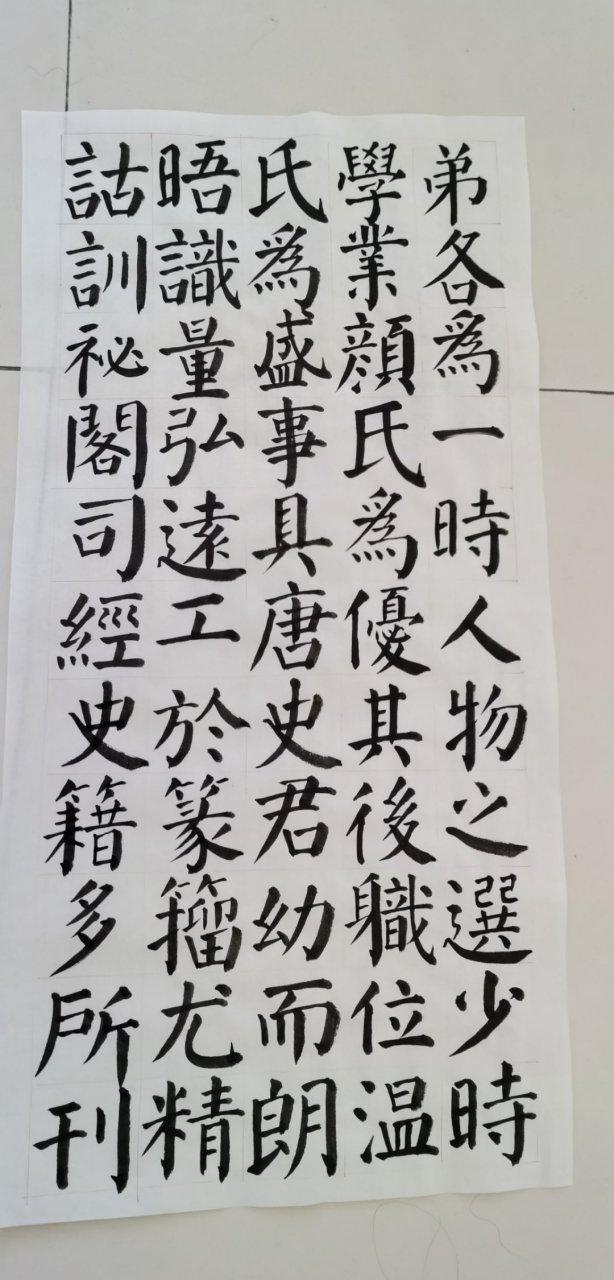 弟各爲一時人物之選少時
學業顔氏爲優其後職位温
氏爲盛事具唐史君幼而朗
晤識量弘遠工於篆籀尤精
詁訓祕閣司經史籍多所刊